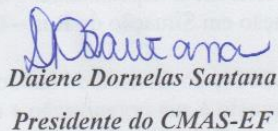 Daiene Dornelas Santana
Presidente do CMAS-EF